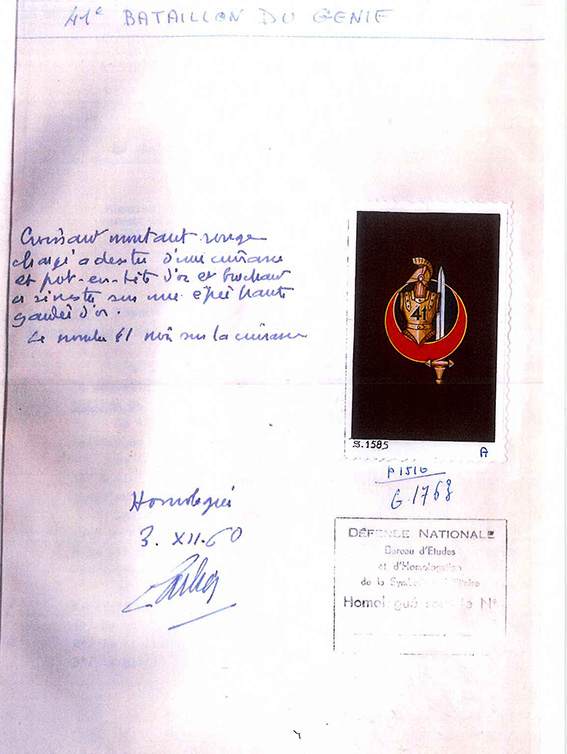 41e BATAILLON DU GENIE
Croissant montant rouge
chargé à dextre d'une cuirasse
et pot-en-tête d'or et brochant
à senestre sur une épée haute
gardée d'or.
Le nombre 41 noir sur la cuirasse
41
S.1585
A
P1516
G.1768
Homologué
3. XII.60
DÉFENSE NATIONALE
Bureau d'Etudes
et d'Homologation
de la
Homologué sous le N°